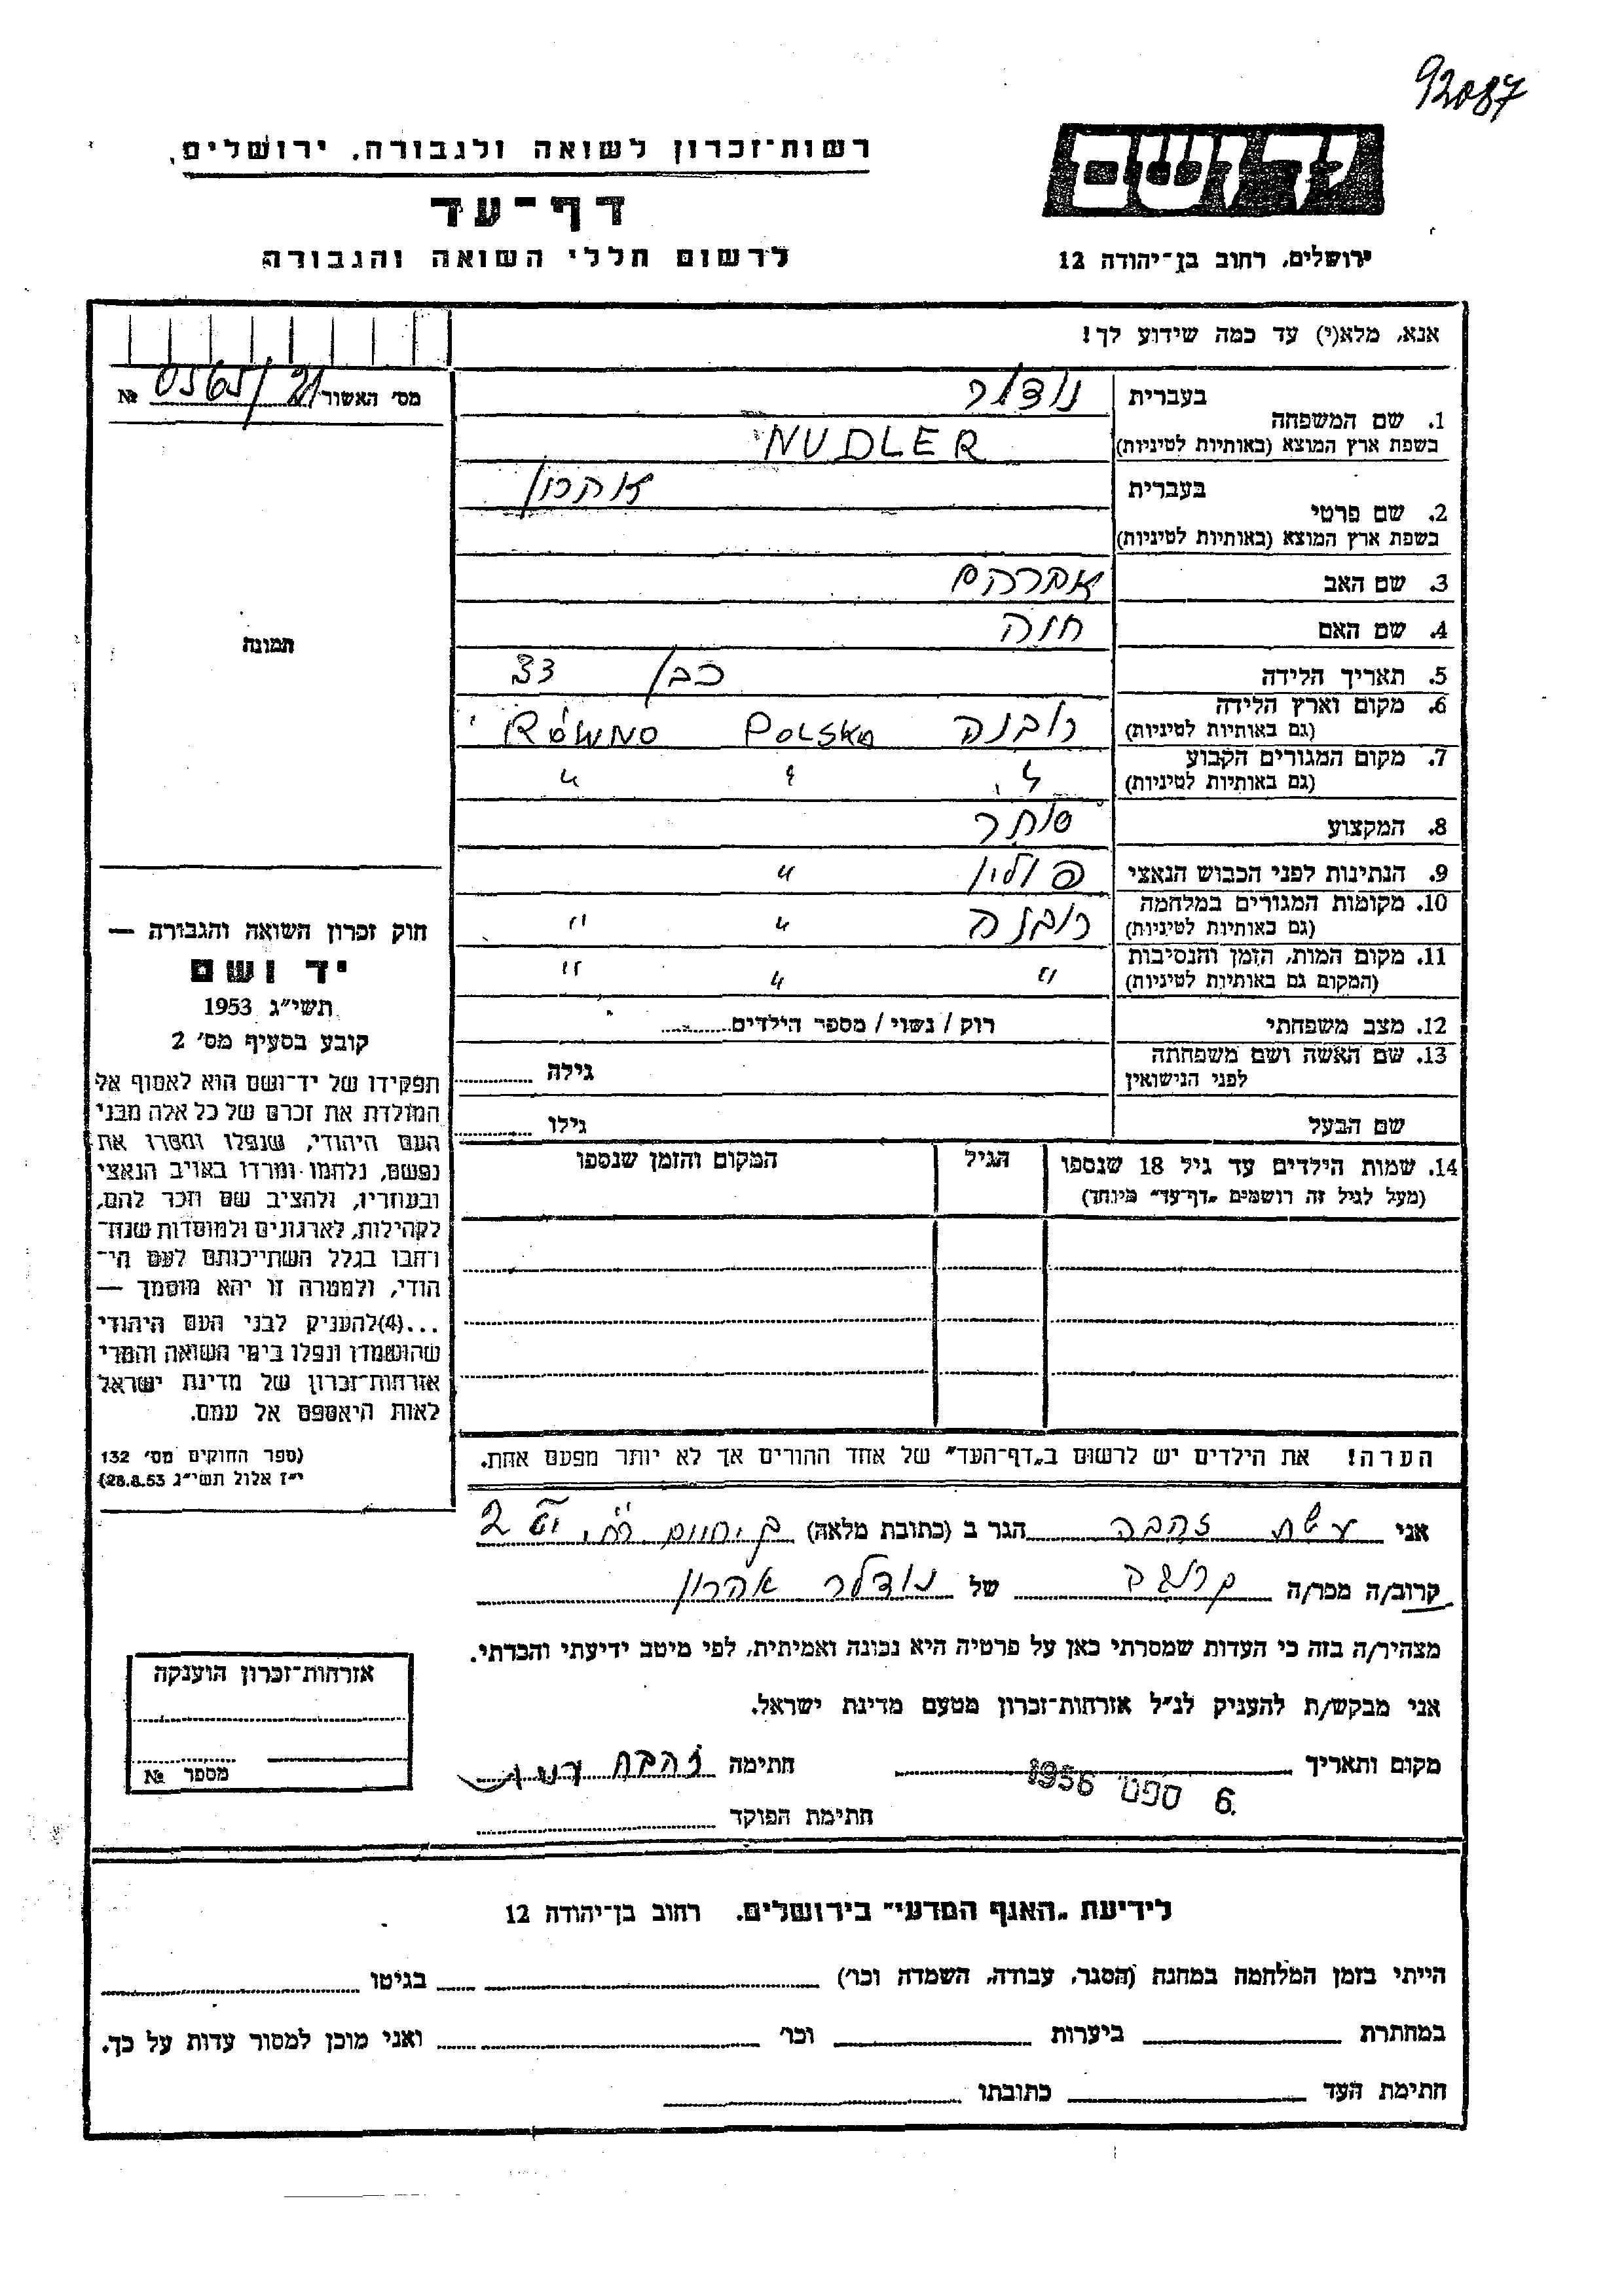 92087
רשות־זכרון לשואה ולגבורה. ירושלים.
דף־עד
לרשום חללי השואה והגבורה
יד ושם
ירושלים, רחוב בן־יהודה 12
אנא, מלא(י) עד כמה שידוע לך!
מס׳ האשור 0565/21 №
1. שם המשפחה בעברית נודלר
בשפת ארץ המוצא (באותיות לטיניות) NUDLER
2. שם פרטי בעברית אהרון
בשפת ארץ המוצא (באותיות לטיניות)
3. שם האב אברהם
4. שם האם חנה
5. תאריך הלידה כבן 33
6. מקום וארץ הלידה (גם באותיות לטיניות) רובנה Polska Równo
7. מקום המגורים הקבוע (גם באותיות לטיניות) " " "
8. המקצוע סוחר
9. הנתינות לפני הכבוש הנאצי פולין "
10. מקומות המגורים במלחמה (גם באותיות לטיניות) רובנה " "
11. מקום המות, הזמן והנסיבות (המקום גם באותיות לטיניות) " " "
12. מצב משפחתי רוק / נשוי / מספר הילדים
13. שם האשה ושם משפחתה לפני הנישואין גילה
שם הבעל גילו
14. שמות הילדים עד גיל 18 שנספו הגיל המקום והזמן שנספו
(מעל לגיל זה רושמים „דף־עד״ מיוחד)
הערה! את הילדים יש לרשום ב„דף־העד״ של אחד ההורים אך לא יותר מפעם אחת.
תמונה
חוק זכרון השואה והגבורה —
יד ושם
תשי״ג 1953
קובע בסעיף מס׳ 2
תפקידו של יד־ושם הוא לאסוף אל
המולדת את זכרם של כל אלה מבני
העם היהודי, שנפלו ומסרו את
נפשם, נלחמו ומרדו באויב הנאצי
ובעוזריו, ולהציב שם וזכר להם,
לקהילות, לארגונים ולמוסדות שנח־
רחבו בגלל השתייכותם לעם הי־
הודי, ולמטרה זו יהא מוסמך —
...(4)להעניק לבני העם היהודי
שהושמדו ונפלו בימי השואה והמרי
אזרחות־זכרון של מדינת ישראל
לאות היאספם אל עמם.
(ספר החוקים מס׳ 132
י״ז אלול תשי״ג 28.8.53)
אני זהבה הגר ב (כתובת מלאה)
קרוב/ה מכר/ה של נודלר אהרון
מצהיר/ה בזה כי העדות שמסרתי כאן על פרטיה היא נכונה ואמיתית, לפי מיטב ידיעתי והכרתי.
אני מבקש/ת להעניק לנ״ל אזרחות־זכרון מטעם מדינת ישראל.
מקום ותאריך 6. ספט׳ 1956 חתימה זהבה
חתימת הפוקד
אזרחות־זכרון הוענקה
מספר №
לידיעת „האגף המדעי״ בירושלים. רחוב בן־יהודה 12
הייתי בזמן המלחמה במחנה (הסגר, עבודה, השמדה וכו׳) בגיטו
במחתרת ביערות וכו׳ ואני מוכן למסור עדות על כך.
חתימת העד כתובתו